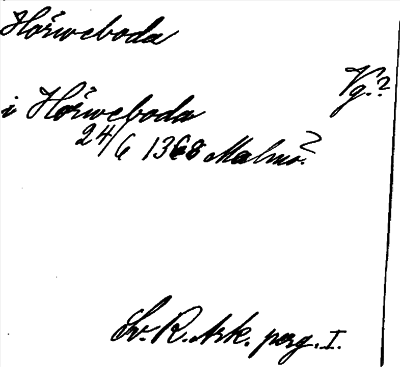 Hörweboda
Vg.?
i Hörweboda
24/6 1368 Malmö?
Sv. R. Ark. perg. I.